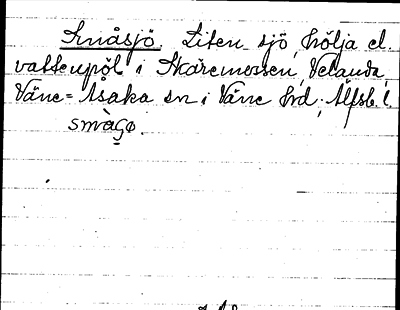 Småsjö. Liten sjö, hölja el.
vattenpöl i Skäremossen, Velanda,
Väne-Åsaka sn i Väne hrd, Älfsb. l.
småʃø.